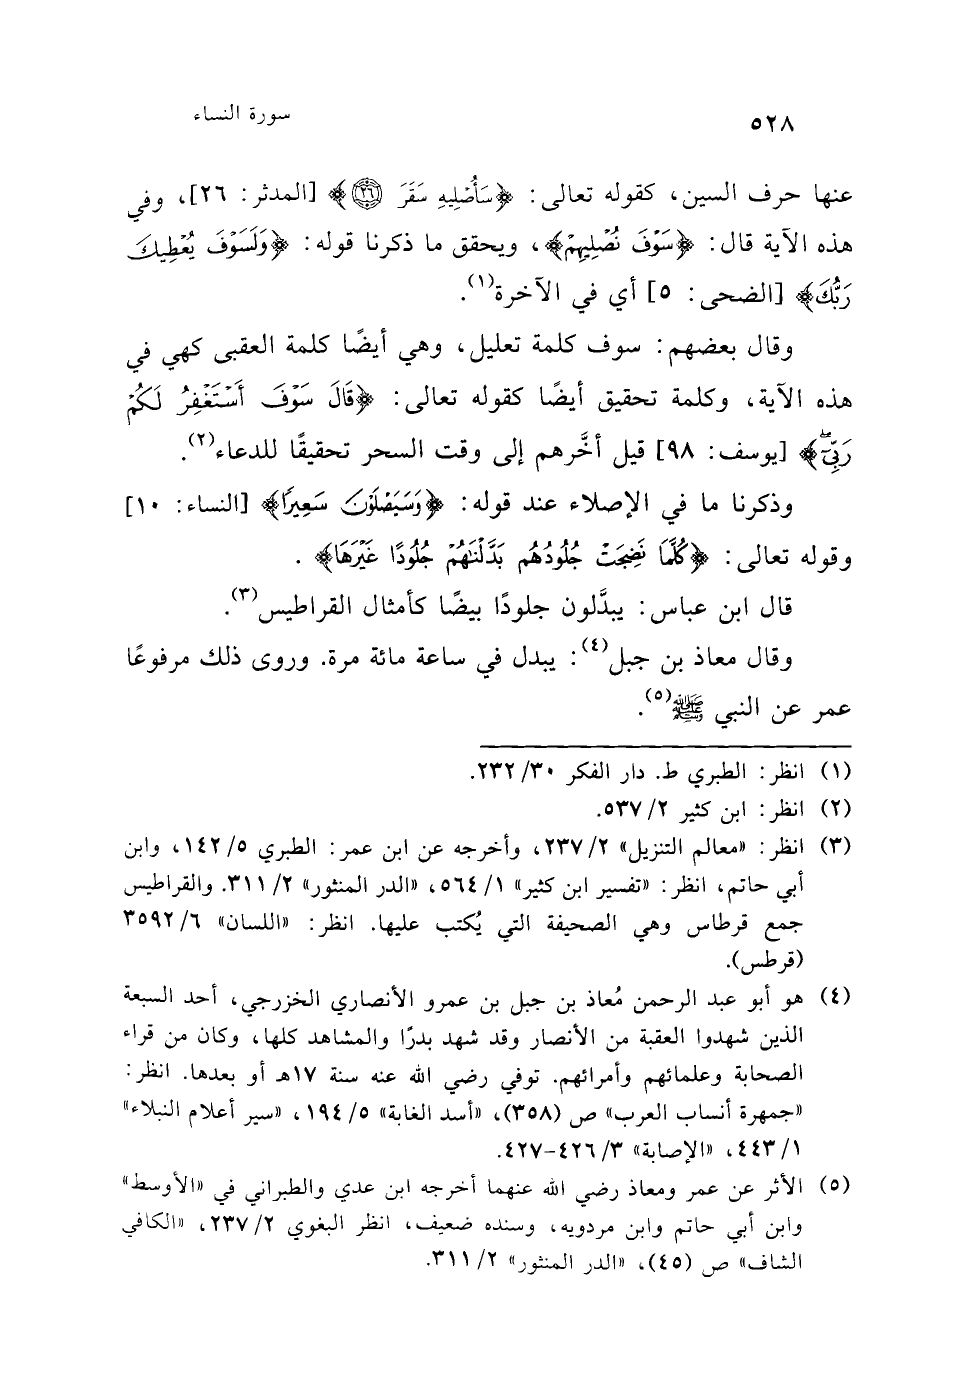 ٥٢٨ سورة النساء
عنها حرف السين، كقوله تعالى: ﴿سَأُصْلِيهِ سَقَرَ ٢٦﴾ [المدثر: ٢٦]، وفي
هذه الآية قال: ﴿سَوْفَ نُصْلِيهِمْ﴾، ويحقق ما ذكرنا قوله: ﴿وَلَسَوْفَ يُعْطِيكَ
رَبُّكَ﴾ [الضحى: ٥] أي في الآخرة(١).
وقال بعضهم: سوف كلمة تعليل، وهي أيضًا كلمة العقبى كهي في
هذه الآية، وكلمة تحقيق أيضًا كقوله تعالى: ﴿قَالَ سَوْفَ أَسْتَغْفِرُ لَكُمْ
رَبِّيٓۖ﴾ [يوسف: ٩٨] قيل أخَّرهم إلى وقت السحر تحقيقًا للدعاء(٢).
وذكرنا ما في الإصلاء عند قوله: ﴿وَسَيَصْلَوْنَ سَعِيرًا﴾ [النساء: ١٠]
وقوله تعالى: ﴿كُلَّمَا نَضِجَتْ جُلُودُهُم بَدَّلْنَٰهُمْ جُلُودًا غَيْرَهَا﴾ .
قال ابن عباس: يبدَّلون جلودًا بيضًا كأمثال القراطيس(٣).
وقال معاذ بن جبل(٤): يبدل في ساعة مائة مرة. وروى ذلك مرفوعًا
عمر عن النبي ﷺ(٥).
(١) انظر: الطبري ط. دار الفكر ٣٠/ ٢٣٢.
(٢) انظر: ابن كثير ٢/ ٥٣٧.
(٣) انظر: «معالم التنزيل» ٢/ ٢٣٧، وأخرجه عن ابن عمر: الطبري ٥/ ١٤٢، وابن
أبي حاتم، انظر: «تفسير ابن كثير» ١/ ٥٦٤، «الدر المنثور» ٢/ ٣١١. والقراطيس
جمع قرطاس وهي الصحيفة التي يُكتب عليها. انظر: «اللسان» ٦/ ٣٥٩٢
(قرطس).
(٤) هو أبو عبد الرحمن مُعاذ بن جبل بن عمرو الأنصاري الخزرجي، أحد السبعة
الذين شهدوا العقبة من الأنصار وقد شهد بدرًا والمشاهد كلها، وكان من قراء
الصحابة وعلمائهم وأمرائهم. توفي رضي الله عنه سنة ١٧هـ أو بعدها. انظر:
«جمهرة أنساب العرب» ص (٣٥٨)، «أسد الغابة» ٥/ ١٩٤، «سير أعلام النبلاء»
١/ ٤٤٣، «الإصابة» ٣/ ٤٢٦-٤٢٧.
(٥) الأثر عن عمر ومعاذ رضي الله عنهما أخرجه ابن عدي والطبراني في «الأوسط»
وابن أبي حاتم وابن مردويه، وسنده ضعيف، انظر البغوي ٢/ ٢٣٧، «الكافي
الشاف» ص (٤٥)، «الدر المنثور» ٢/ ٣١١.